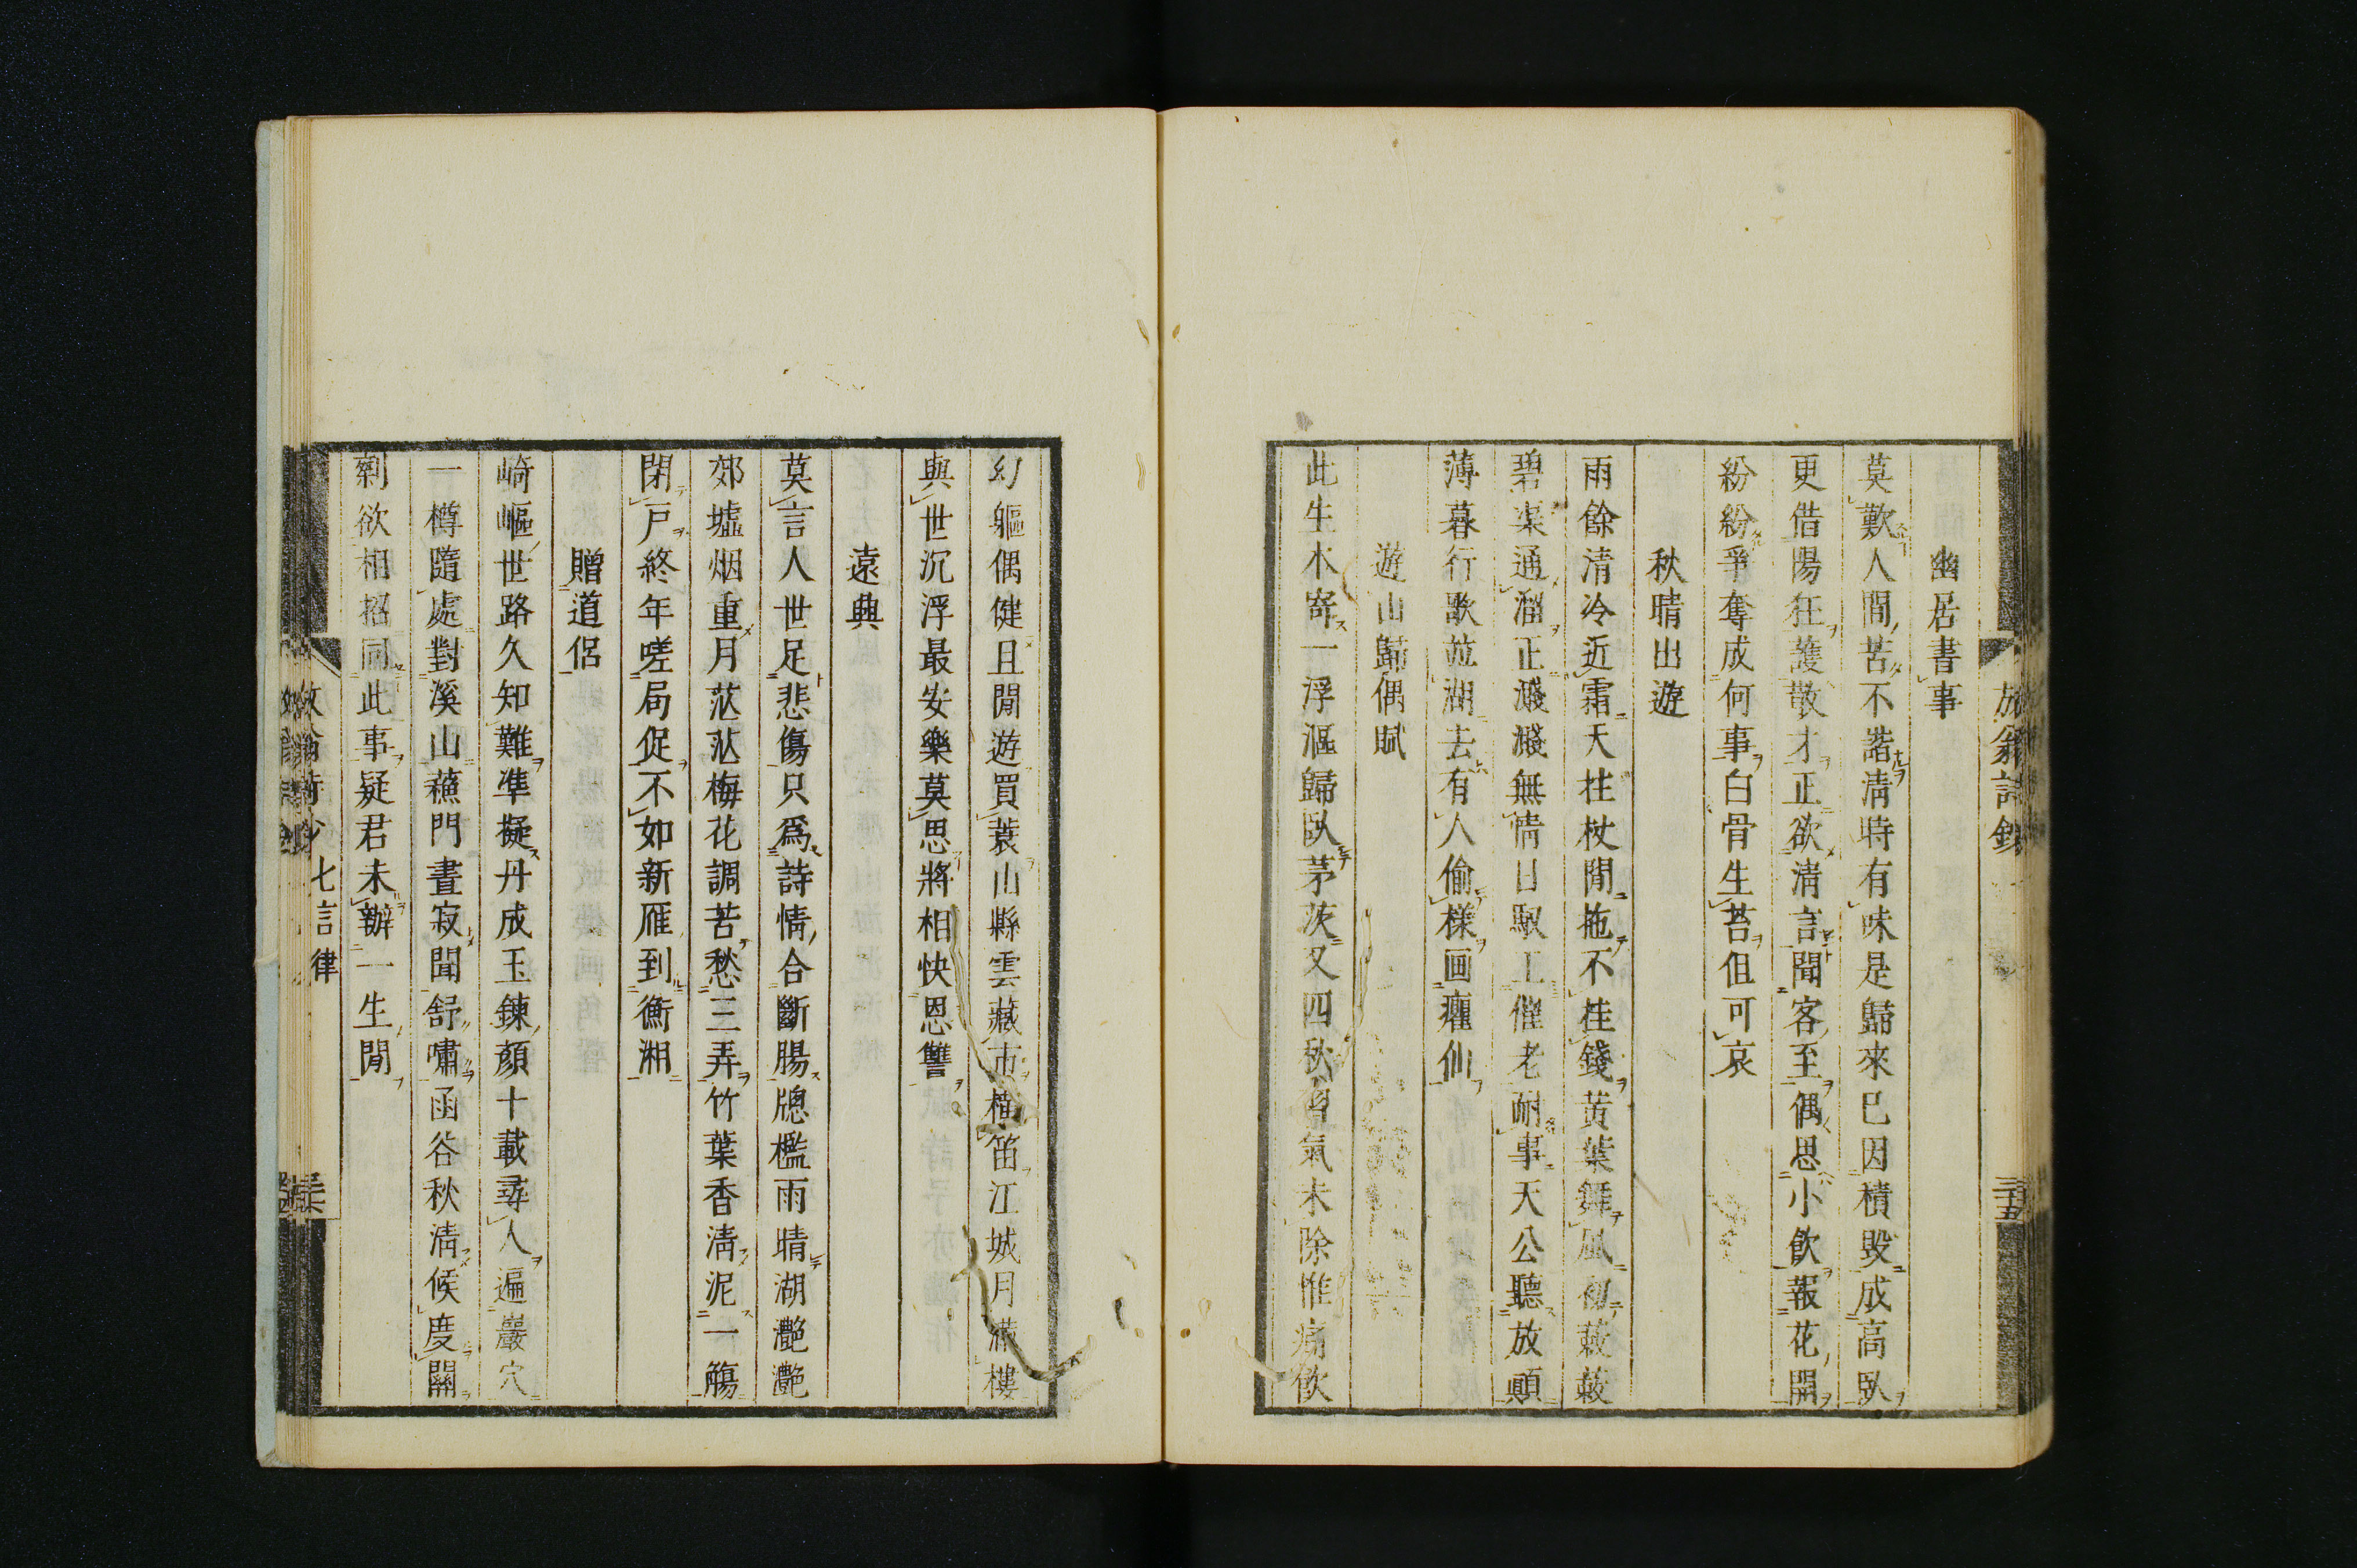 放翁詩鈔
三十五
幽居書事
莫歎人間苦不諧淸時有味是歸來巳因積毀成高臥
更借陽狂護散才正欲淸言聞客至偶思小飲報花開
紛紛爭奪成何事白骨生苔但可哀
秋晴出遊
雨餘清冷近霜天拄杖閒拖不挂錢黃葉舞風初蔌蔌
碧渠通溜正濺濺無情日馭工催老耐事天公聽放顚
薄暮行歌並湖去有人偷樣画癯仙
遊山歸偶賦
此生木寄一浮漚歸臥茅茨又四秋習氣未除惟痛飲
幻軀偶健且閒遊買蓑山縣雲藏市橫笛江城月滿樓
與世沉浮最安樂莫思將相快恩讐
遠興
莫言人世足悲傷只爲詩情合斷腸牕檻雨晴湖灔灔
郊墟烟重月茫茫梅花調苦愁三弄竹葉香淸泥一觴
閉戸終年嗟局促不如新雁到衡湘
贈道侶
崎嶇世路久知難準擬丹成玉鍊顏十載尋人遍巖穴
一樽隨處對溪山蘓門晝寂聞舒嘯函谷秋淸候度關
剩欲相招同此事疑君未辦一生閒
放翁詩鈔
七言律